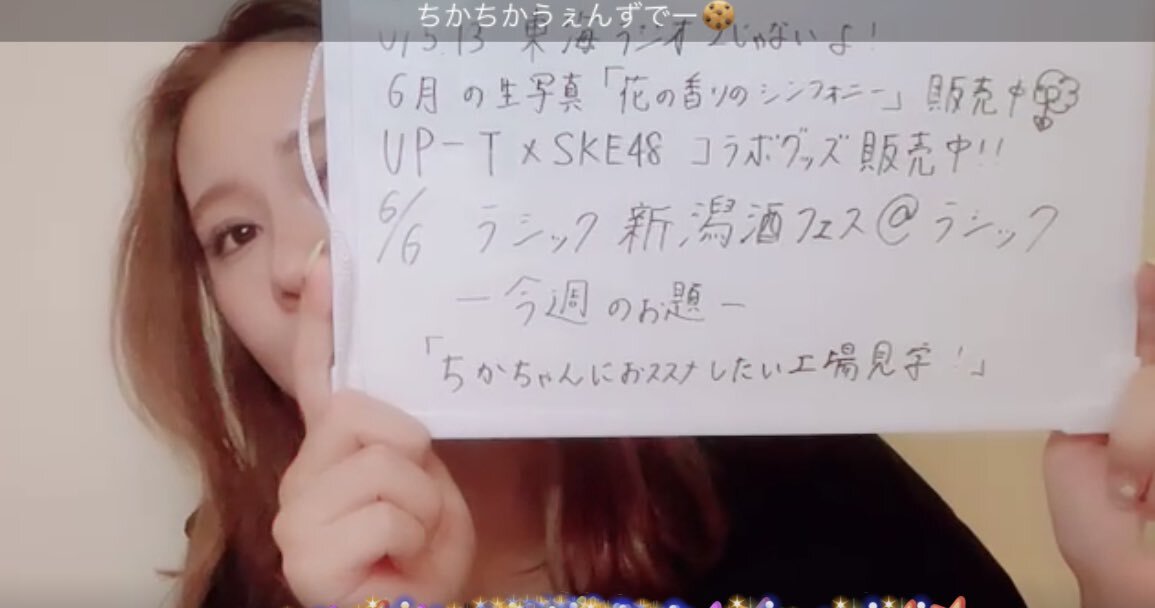 ちかちかうぇんずでー🍪
6/5.13 東海ラジオ 2じゃないよ!
6月の生写真「花の香りのシンフォニー」販売中
UP-T×SKE48 コラボグッズ販売中!!
6/6 ラシック新潟酒フェス@ラシック
ー今週のお題ー
「ちかちゃんにおススメしたい工場見学!」